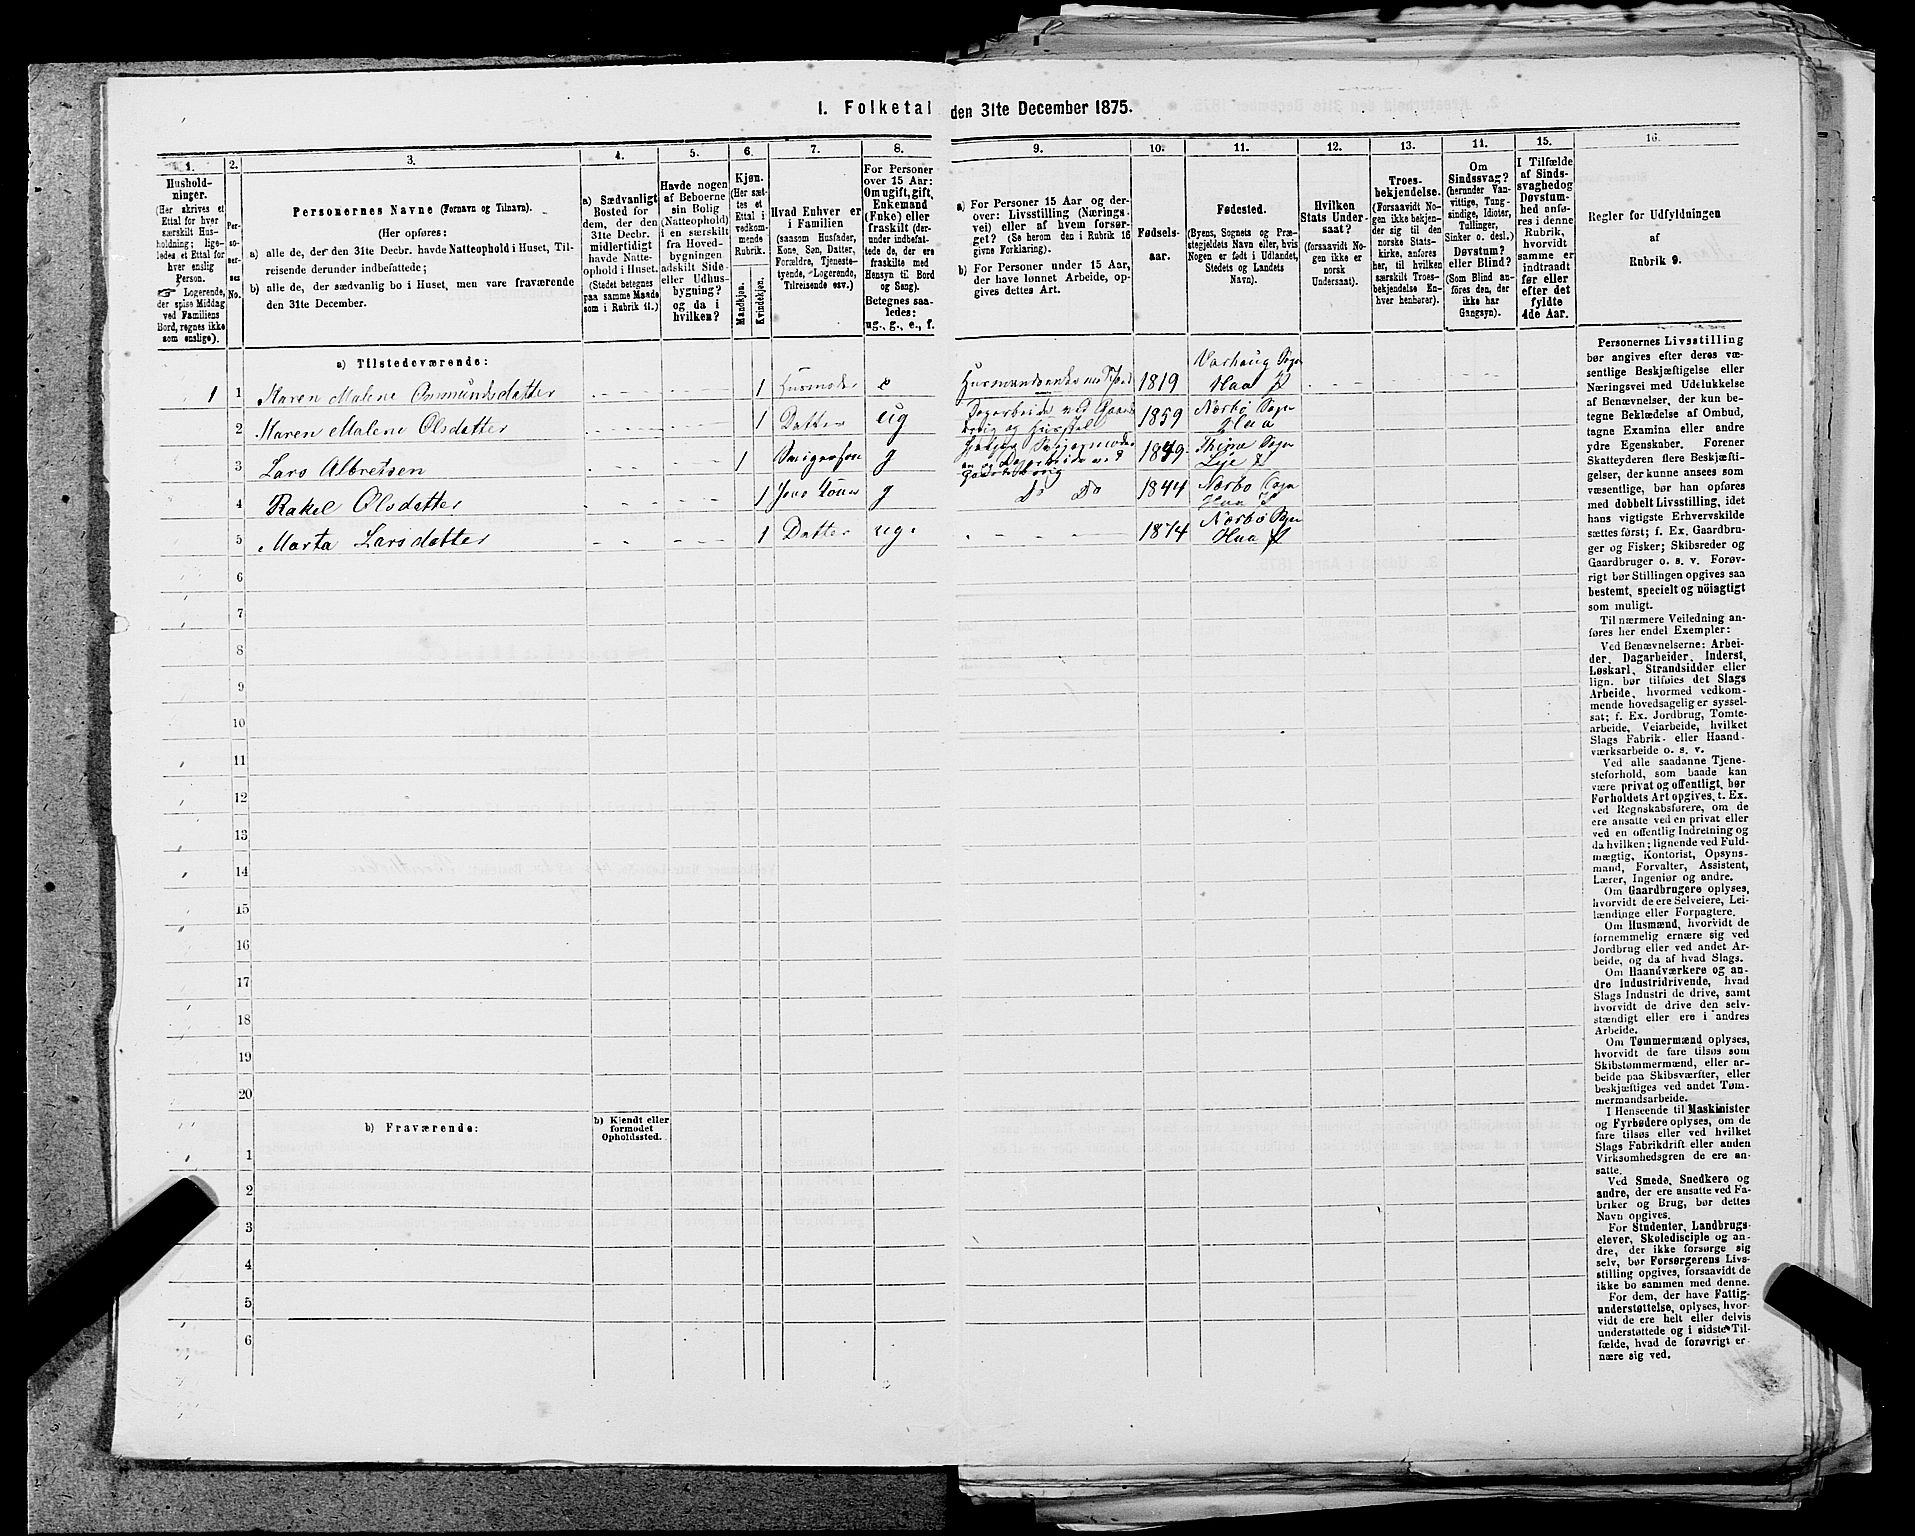 1. Folketal den 31te December 1875.
1.
2.
3.
4.
5.
6.
7.
8.
9.
10.
11.
12.
13.
14.
15.
16.
Hushold-
ninger.
(Her skrives et
Ettal for hver
særskilt Hus-
holdning; lige-
ledes et Ettal for
hver enslig
Person.
☞ Logerende,
der spise Middag
ved Familiens
Bord, regnes ikke
som enslige).
Per-
so-
ner-
nes
No.
Personernes Navne (Fornavn og Tilnavn).
(Her opføres:
a) alle de, der den 31te Decbr. havde Natteophold i Huset, Til-
reisende derunder indbefattede;
b) alle de, der sædvanlig bo i Huset, men vare fraværende
den 31te December.
a) Sædvanligt
Bosted for
dem, der den
31te Decbr.
midlertidigt
havde Natte-
ophold i Huset.
(Stedet betegnes
paa samme Maade
som i Rubrik 11.)
Havde nogen
af Beboerne
sin Bolig
(Natteophold)
i en særskilt
fra Hoved-
bygningen
adskilt Side-
eller Udhus-
bygning?
og da i
hvilken?
Kjøn.
(Her sæt-
tes et
Ettal i
vedkom-
mende
Rubrik.
Mandkjøn.
Kvindekjøn.
Hvad Enhver er
i Familien
(saasom Husfader,
Kone, Søn, Datter,
Forældre, Tjeneste-
tyende, Logerende,
Tilreisende osv.)
For Personer
over 15 Aar:
Om ugift, gift,
Enkemand
(Enke) eller
fraskilt (der-
under indbefat-
tede de, der ere
fraskilte med
Hensyn til Bord
og Seng).
Betegnes saa-
ledes:
ug., g., e., f.
a) For Personer 15 Aar og der-
over: Livsstilling (Nærings-
vei) eller af hvem forsør-
get? (Se herom den i Rubrik 16
givne Forklaring).
b) For Personer under 15 Aar,
der have lønnet Arbeide, op-
gives dettes Art.
Fødsels-
aar.
Fødested.
(Byens, Sognets og Præ-
stegjeldets Navn eller, hvis
Nogen er født i Udlandet,
Stedets og Landets
Navn).
Hvilken
Stats Under-
saat?
(forsaavidt No-
gen ikke er
norsk
Undersaat).
Troes-
bekjendelse.
(Forsaavidt No-
gen ikke bekjen-
der sig til den
norske Stats-
kirke, anføres
her, til hvilken
særskilt Troes-
bekjendelse En-
hver henhører).
Om
Sindssvag?
(herunder Van-
vittige, Tung-
sindige, Idioter,
Tullinger,
Sinker o. desl.)
Døvstum?
eller Blind?
(Som Blind an-
føres den, der
ikke har
Gangsyn).
I Tilfælde
af Sinds-
svaghed og
Døvstum-
hed anfø-
res i denne
Rubrik,
hvorvidt
samme er
indtraadt
før eller
efter det
fyldte
4de Aar.
Regler for Udfyldningen
af
Rubrik 9.
a) Tilstedeværende:
1 1 Karen Malene Osmundsdatter 1 Husmoder e Husmandsenke med Jord 1819 Varhaug Sogn Haa P
2 Maren Malene Olsdatter 1 Datter ug Dagarbeide ved Gaards-brug og Husstel 1859 Nærbø Sogn Haa
3 Lars Albretsen 1 Svigersøn g Hjælper Svigermoderen og Dagarbeide ved Gaardsbrug 1849 Thime Sogn Lye P
4 Rakel Olsdatter 1 Hans Kone g Do Do 1844 Nærbø Sogn Haa P
5 Marta Larsdatter 1 Datter ug. 1874 Nærbø Sogn Haa P
6
7
8
9
10
11
12
13
14
15
16
17
18
19
20
b) Fraværende:
b) Kjendt eller
formodet
Opholdssted.
1
2
3
4
5
6
Personernes Livsstilling
bør angives efter deres væ-
sentlige Beskjæftigelse eller
Næringsvei med Udelukkelse
af Benævnelser, der kun be-
tegne Beklædelse af Ombud,
tagne Examina eller andre
ydre Egenskaber. Forener
Skatteyderen flere Beskjæfti-
gelser, der kunne ansees som
væsentlige, bør han opføres
med dobbelt Livsstilling, idet
hans vigtigste Erhvervskilde
sættes først; f. Ex. Gaardbru-
ger og Fisker; Skibsreder og
Gaardbruger o. s. v. Forøv-
rigt bør Stillingen opgives saa
bestemt, specielt og nöiagtigt
som muligt.
Til nærmere Veiledning an-
føres her endel Exempler:
Ved Benævnelserne: Arbei-
der, Dagarbeider, Inderst,
Løskarl, Strandsidder eller
lign. bør tilføies det Slags
Arbeide, hvormed vedkom-
mende hovedsagelig er syssel-
sat; f. Ex. Jordbrug, Tomte-
arbeide, Veiarbeide, hvilket
Slags Fabrik- eller Haand-
værksarbeide o. s. v.
Ved alle saadanne Tjene-
steforhold, som baade kan
være privat og offentligt, bør
Forholdets Art opgives, t. Ex.
ved Regnskabsførere, om de
ere ansatte ved en privat eller
ved en offentlig Indretning og
da hvilken; lignende ved Fuld-
mægtig, Kontorist, Opsyns-
mand, Forvalter, Assistent,
Lærer, Ingeniør og andre.
Om Gaardbrugere oplyses,
hvorvidt de ere Selveiere, Lei-
lændinge eller Forpagtere.
Om Husmænd, hvorvidt de
fornemmelig ernære sig ved
Jordbrug eller ved andet Ar-
beide, og da af hvad Slags.
Om Haandværkere og an-
dre Industridrivende, hvad
Slags Industri de drive, samt
hvorvidt de drive den selv-
stændigt eller ere i andres
Arbeide.
Om Tømmermænd oplyses,
hvorvidt de fare tilsøs som
Skibstømmermænd, eller ar-
beide paa Skibsværfter, eller
beskjæftiges ved andet Tøm-
mermandsarbeide.
I Henseende til Maskinister
og Fyrbødere oplyses, om de
fare tilsøs eller ved hvilket
Slags Fabrikdrift eller anden
Virksomhedsgren de ere an-
satte.
Ved Smede, Snedkere og
andre, der ere ansatte ved Fa-
briker og Brug, bør dettes
Navn opgives.
For Studenter, Landbrugs-
elever, Skoledisciple og an-
dre, der ikke forsørge sig
selv, bør Forsørgerens Livs-
stilling opgives, forsaavidt de
ikke bo sammen med denne.
For dem, der have Fattig-
understøttelse, oplyses, hvor-
vidt de ere helt eller delvis
understøttede og i sidste Til-
fælde, hvad de forøvrigt er-
nære sig ved.